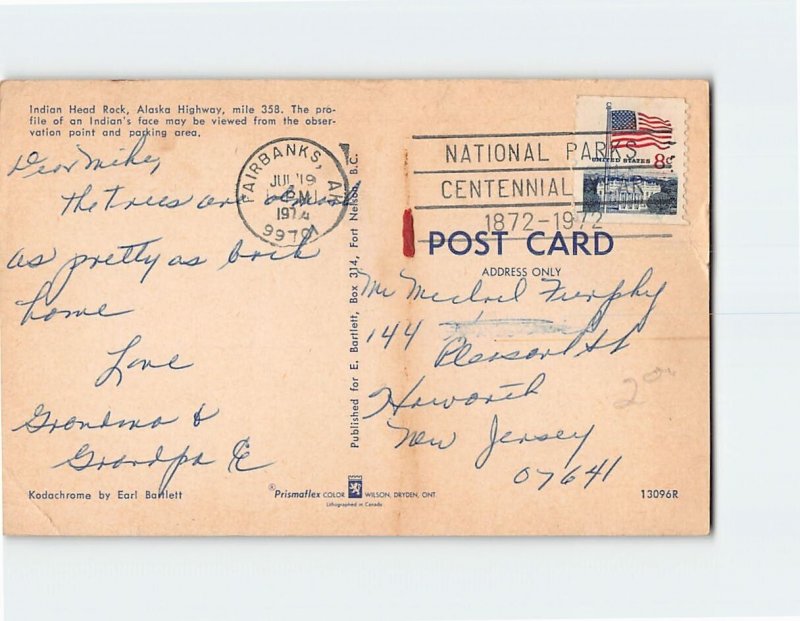 Indian Head Rock, Alaska Highway, mile 358. The pro-
file of an Indian's face may be viewed from the obser-
vation point and parking area.
Dear Mike,
The trees are almost
as pretty as back
home
Love
Grandma &
Grandpa E
Kodachrome by Earl Bartlett
FAIRBANKS, AK
JUL 19
PM
99701
Published for E. Bartlett, Box 314, Fort Nelson, B.C.
NATIONAL PARKS
CENTENNIAL YEAR
1872-1972
UNITED STATES 8¢
POST CARD
ADDRESS ONLY
Mr Michael Furphy
144
Pleasant St
Haworth
New Jersey
07641
200
®Prismaflex COLOR WILSON, DRYDEN, ONT.
Lithographed in Canada
13096R